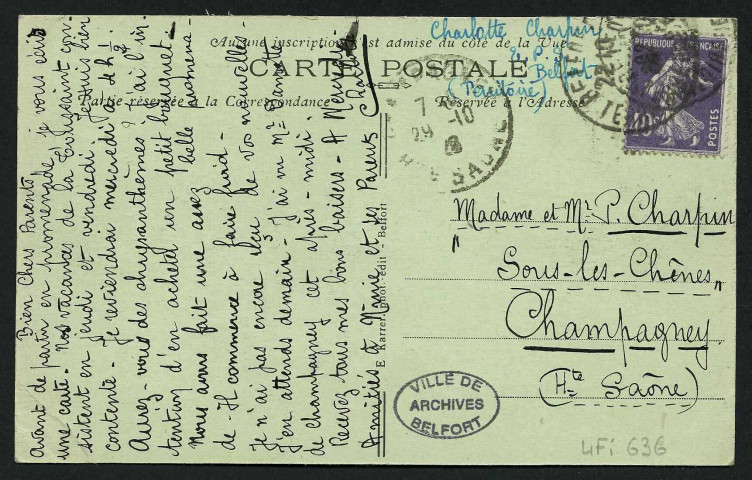 Aucune inscription n'est admise du côté de la Vue
CARTE POSTALE
Partie réservée à la Correspondance
Réservée à l'Adresse
Charlotte Charpin
E.P.S.
Belfort
(Territoire)
REPUBLIQUE FRANÇAISE
40c
POSTES
7 -
29 -10
Hte SAONE
Bien Chers Parents
avant de partir en promenade, je vous écris
une carte. Nos vacances de la Toussaint con-
sistent en jeudi et vendredi. Je suis bien
contente. Je reviendrai mercredi à 2h 1/2
Avez-vous des chrysanthèmes? j'ai l'in-
tention d'en acheter un petit bouquet.
Nous avons fait une assez belle promena-
de. Il commence à faire froid.
Je n'ai pas encore reçu de vos nouvelles
j'en attends demain. J'ai vu Mr
de Champagney cet après-midi.
Recevez tous mes bons baisers. A
Amitiés à Mamie et ses Parents
E. Karrer, phot.-édit - Belfort
Madame et Mr P. Charpin
"Sous-les-Chênes"
Champagney
(Hte Saône)
VILLE DE
ARCHIVES
BELFORT
4Fi 636